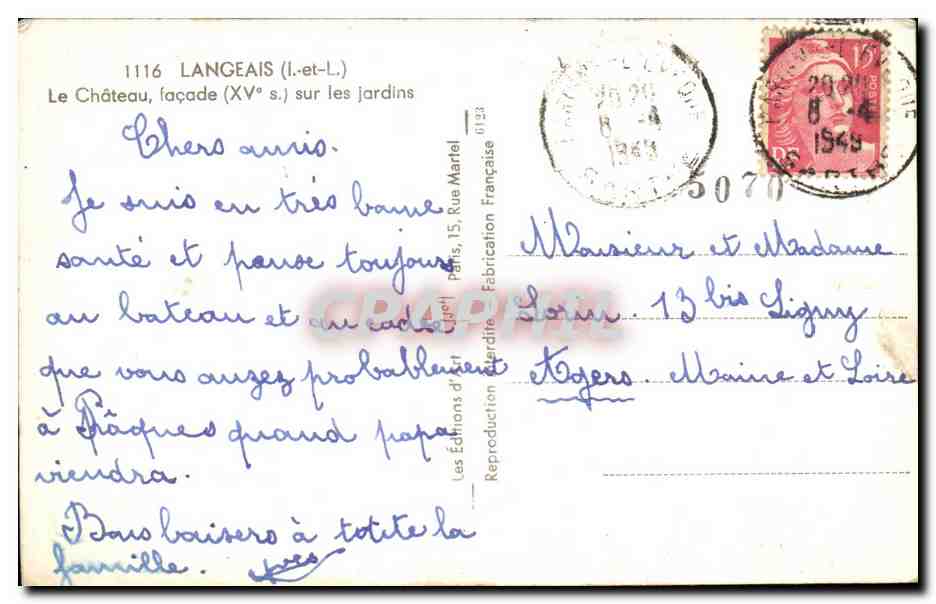 1116 LANGEAIS (I.-et-L.)
Le Château, façade (XVe s.) sur les jardins
Chers amis.
Je suis en très bonne
santé et pense toujours
au bateau et au cadre
que vous aurez probablement
à Pâques quand papa
viendra.
Bons baisers à totite la
famille. Yves
Les Éditions d'Art Paris, 15, Rue Martel
Reproduction Interdite - Fabrication Française
6193
20 20
8 - 4
1949
SARTHE
15
POSTES
RF
20 20
8 - 4
1949
SARTHE
5070
Monsieur et Madame
Lorin. 13 bis Ligny
Angers. Maine et Loire
CPAPHIL